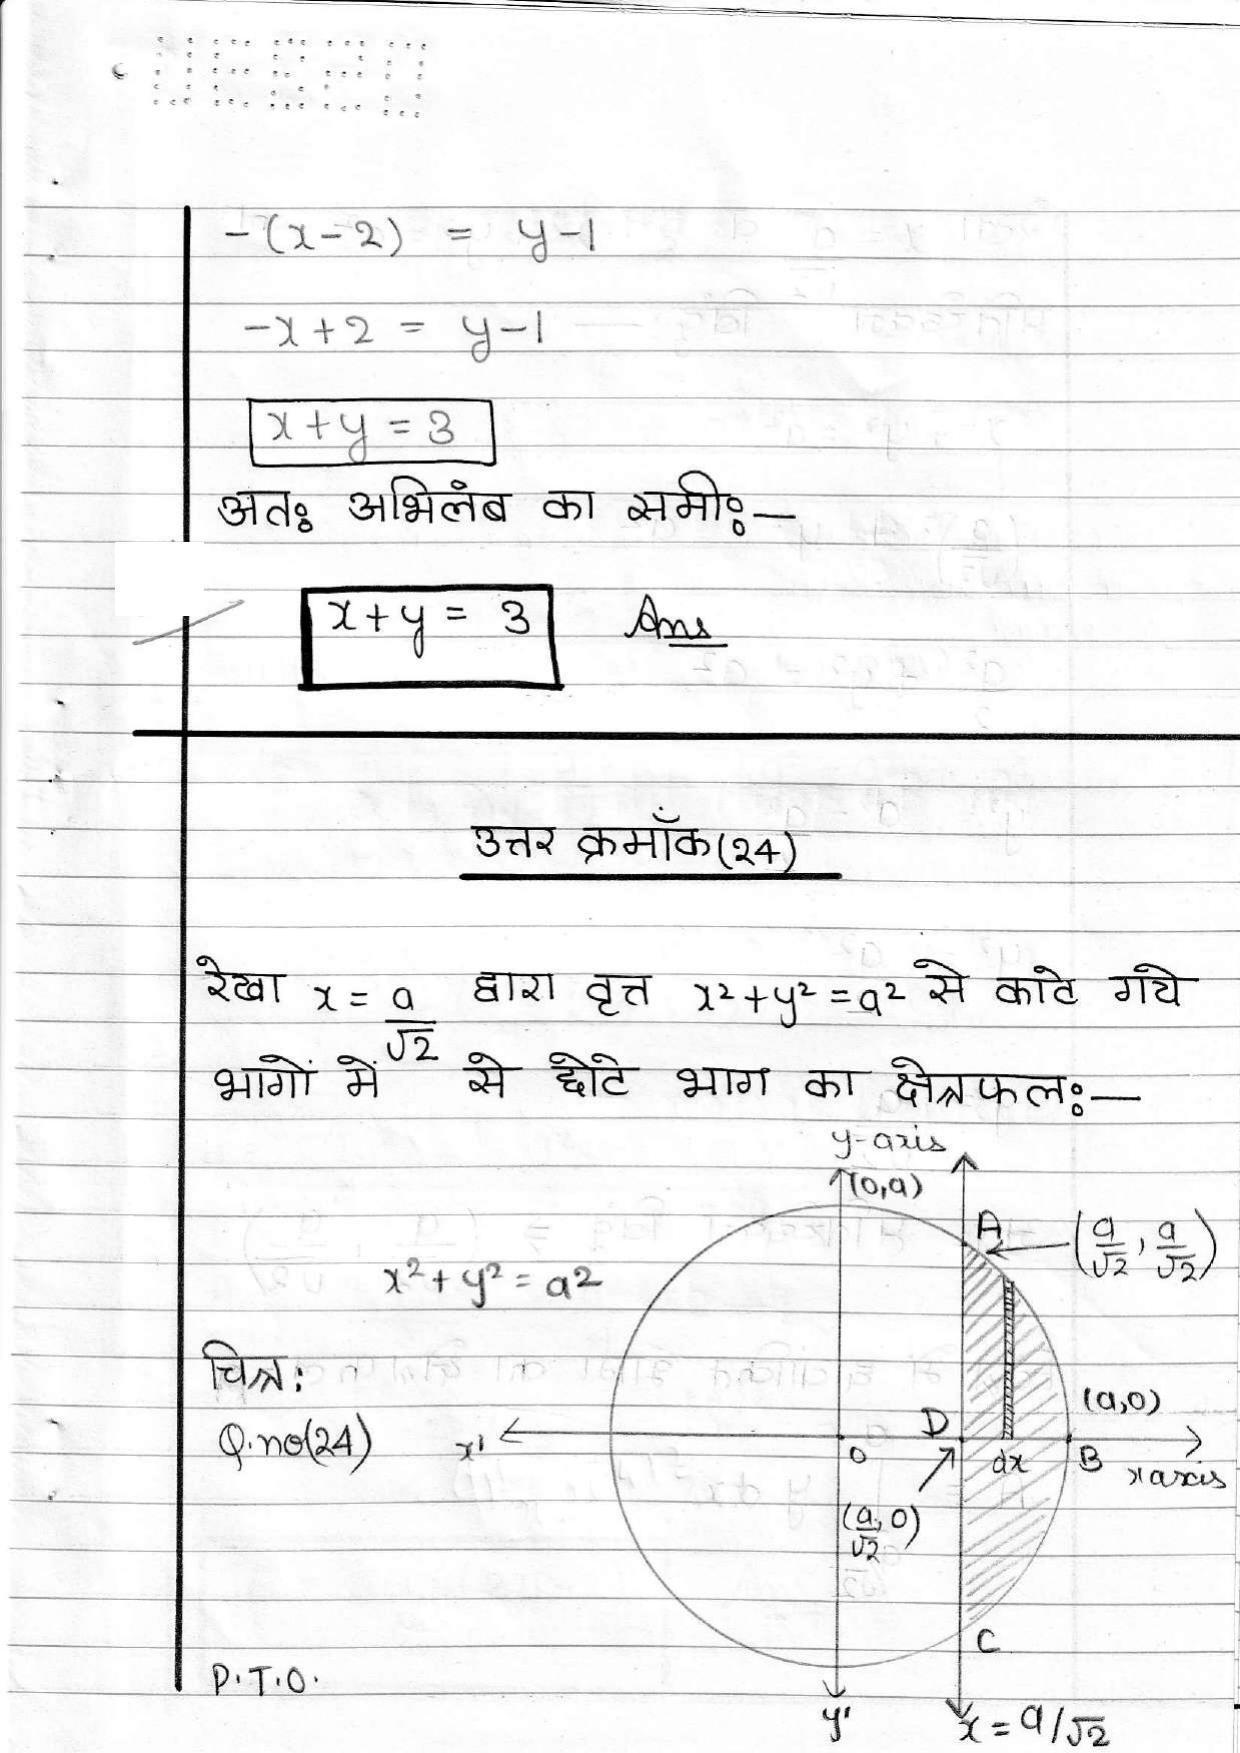 -(x-2) = y-1
-x+2 = y-1
x+y = 3
अतः अभिलंब का समीः—
x+y = 3 Ans
उत्तर क्रमाँक(24)
रेखा x = a/√2 द्वारा वृत्त x²+y² = a² से काटे गये
भागों में से छोटे भाग का क्षेत्रफलः—
y-axis
(0,a)
A
(a/√2, a/√2)
x²+y² = a²
चित्रः
Q.no(24)
(a,0)
x'
D
O
dx
B
x axis
(a/√2, 0)
C
P.T.O.
y'
x = a/√2